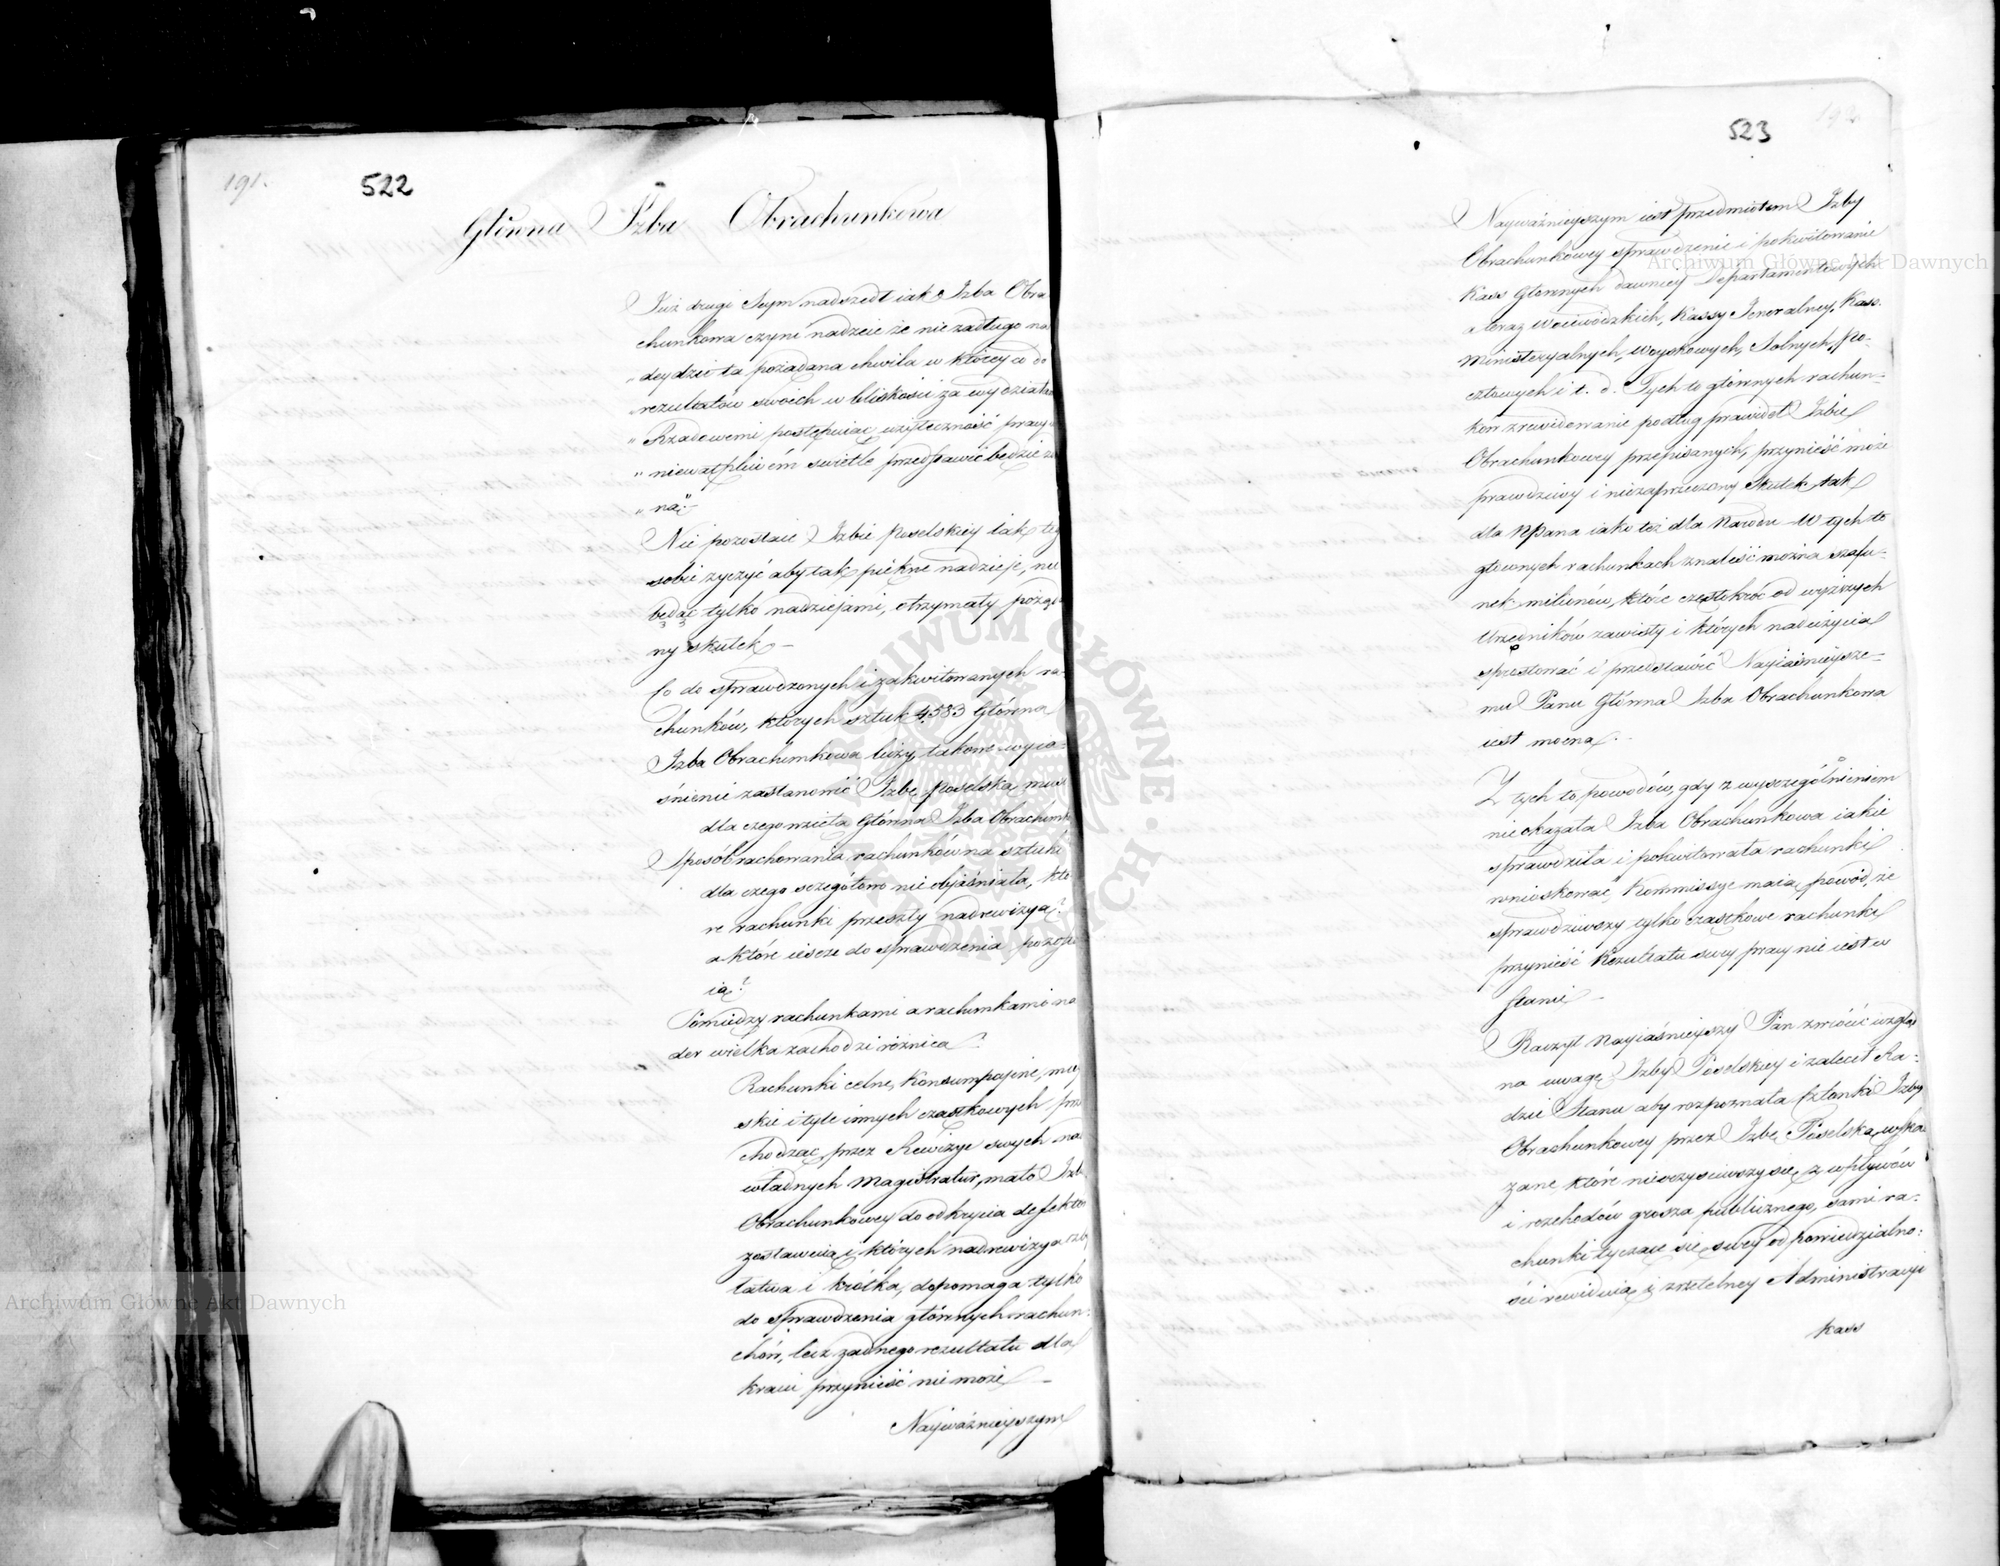 191.
522
Główna Izba Obrachunkowa
Już drugi Seym nadszedł iak Izba Obra
chunkowa czyni nadzieie że niezadługo na
„deydzie ta pożądana chwila w którey co do
„rezultatów swoich w bliskości za wydziałam
„Rządowemi postępuiąc, użyteczność pracy w
„niewątpliwém świetle przedstawić będzie zo
„na."
Nie pozostaie Izbie Poselskiey iak tego
sobie życzyć aby tak piękne nadzieje, nie
będąc tylko nadziejami, otrzymały pożąda
ny skutek –
Co do sprawdzonych i zakwitowanych ra-
chunków, których sztuk 4,583 Główna
Izba Obrachunkowa liczy, takowe wyia-
śnienie zastanowić Izbę Poselską musi
dla czego wzięła Główna Izba Obrachunk
sposób rachowania rachunków na sztuki
dla czego szczegółowo nie obiaśniała, któ
re rachunki przeszły nadrewizyą?
a które ieszcze do sprawdzenia pozosta
ią?
Pomiędzy rachunkami a rachunkami na
der wielka zachodzi różnica?
Rachunki celne, Konsumpcyine, miey
skie i tyle innych cząstkowych prze
chodząc przez Rewizye swych na
władnych Magistratur, mało Izbie
Obrachunkowey do odkrycia defektów
zostawuią i których nadrewizya
łatwa i krótka, dopomaga tylko
do sprawdzenia głównych rachun-
ków, lecz żadnego rezultatu dla
kraiu przynieść nie może –
Nayważnieyszym
523
192
Nayważnieyszym iest przedmiotem Izby
Obrachunkowey sprawdzenie i pokwitowanie
Kass Głównych dawniey Departamentowych
a teraz Woiewódzkich, Kassy Jeneralney, Kass.
Ministeryalnych, Woyskowych, Solnych, Po-
cztowych i t. d. Tych to głównych rachun-
ków zrewidowanie podług prawideł Izbie
Obrachunkowey przepisanych, przynieść może
prawdziwy i niezaprzeczony skutek tak
dla NPana iako też dla Narodu – W tych to
głównych rachunkach znaleść można szafu-
nek milionów, które częstokroć od wyższych
Urzędników zawisły i których nadużycia
sprostować i przedstawić Nayiaśnieysze-
mu Panu Główna Izba Obrachunkowa
iest mocna. –
Z tych to powodów, gdy z wyszczególnieniem
nie okazała Izba Obrachunkowa iakie
sprawdziła i pokwitowała rachunki
wnioskować Kommissye maią powód, że
sprawdziwszy tylko cząstkowe rachunki
przynieść Rezultatu swey pracy nie iest w
stanie –
Raczył Nayiaśnieyszy Pan zwrócić wzgląd
na uwagę Izby Poselskiey i zalecił Ra-
dzie Stanu aby rozpoznała Członki Izby
Obrachunkowey przez Izbę Poselską wyka
zane, które nieoczyściwszy się z wpływów
i rozchodów grosza publicznego, sami ra-
chunki tyczące się swey odpowiedzialno-
ści rewiduią i rzetelney Administracyi
Kass
Archiwum Główne Akt Dawnych
Archiwum Główne Akt Dawnych
ARCHIWUM GŁÓWNE AKT DAWNYCH